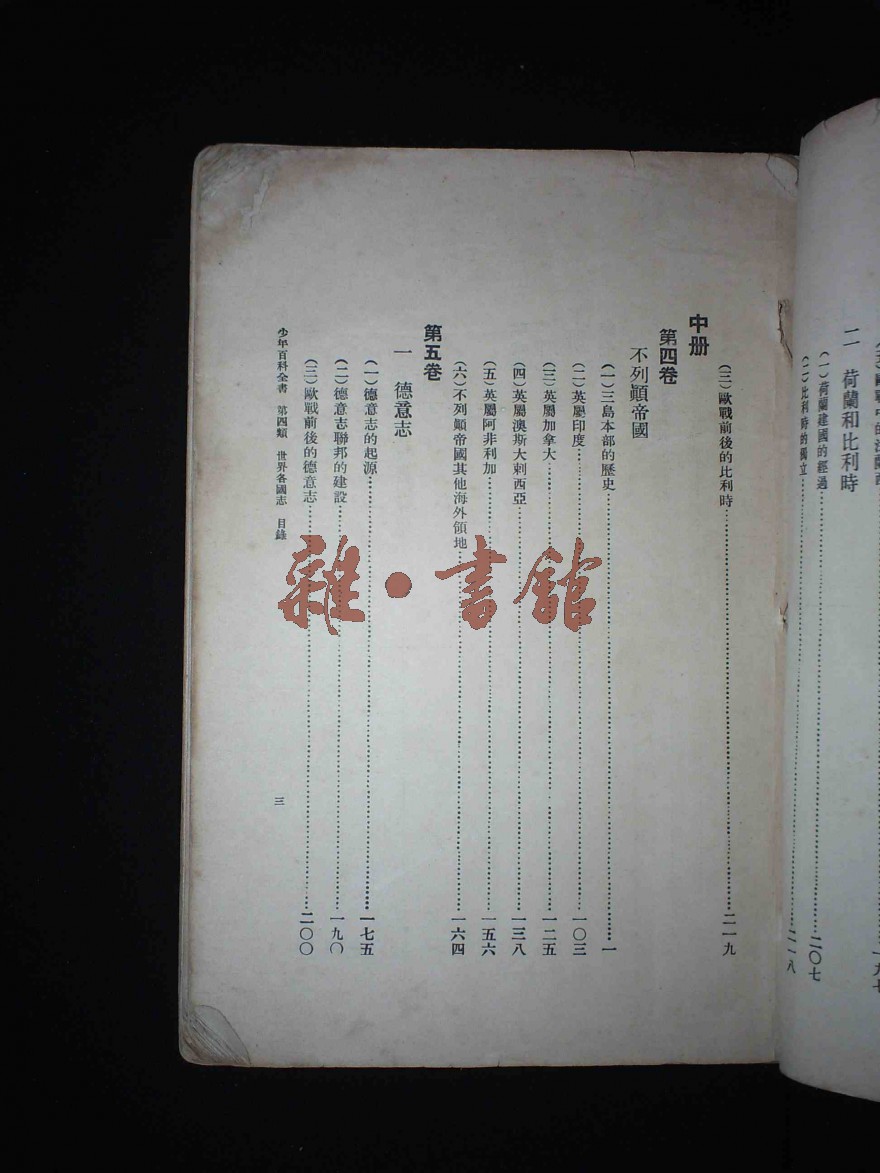 二 荷蘭和比利時
(一)荷蘭建國的經過……二〇七
(二)比利時的獨立……二一八
(三)歐戰前後的比利時……二一九
中册
第四卷
不列顚帝國
(一)三島本部的歷史……一
(二)英屬印度……一〇三
(三)英屬加拿大……一二五
(四)英屬澳斯大剌西亞……一三八
(五)英屬阿非利加……一五六
(六)不列顚帝國其他海外領地……一六四
第五卷
一 德意志
(一)德意志的起源……一七五
(二)德意志聯邦的建設……一九〇
(三)歐戰前後的德意志……二〇〇
少年百科全書 第四類 世界各國志 目錄
三
雜·書館